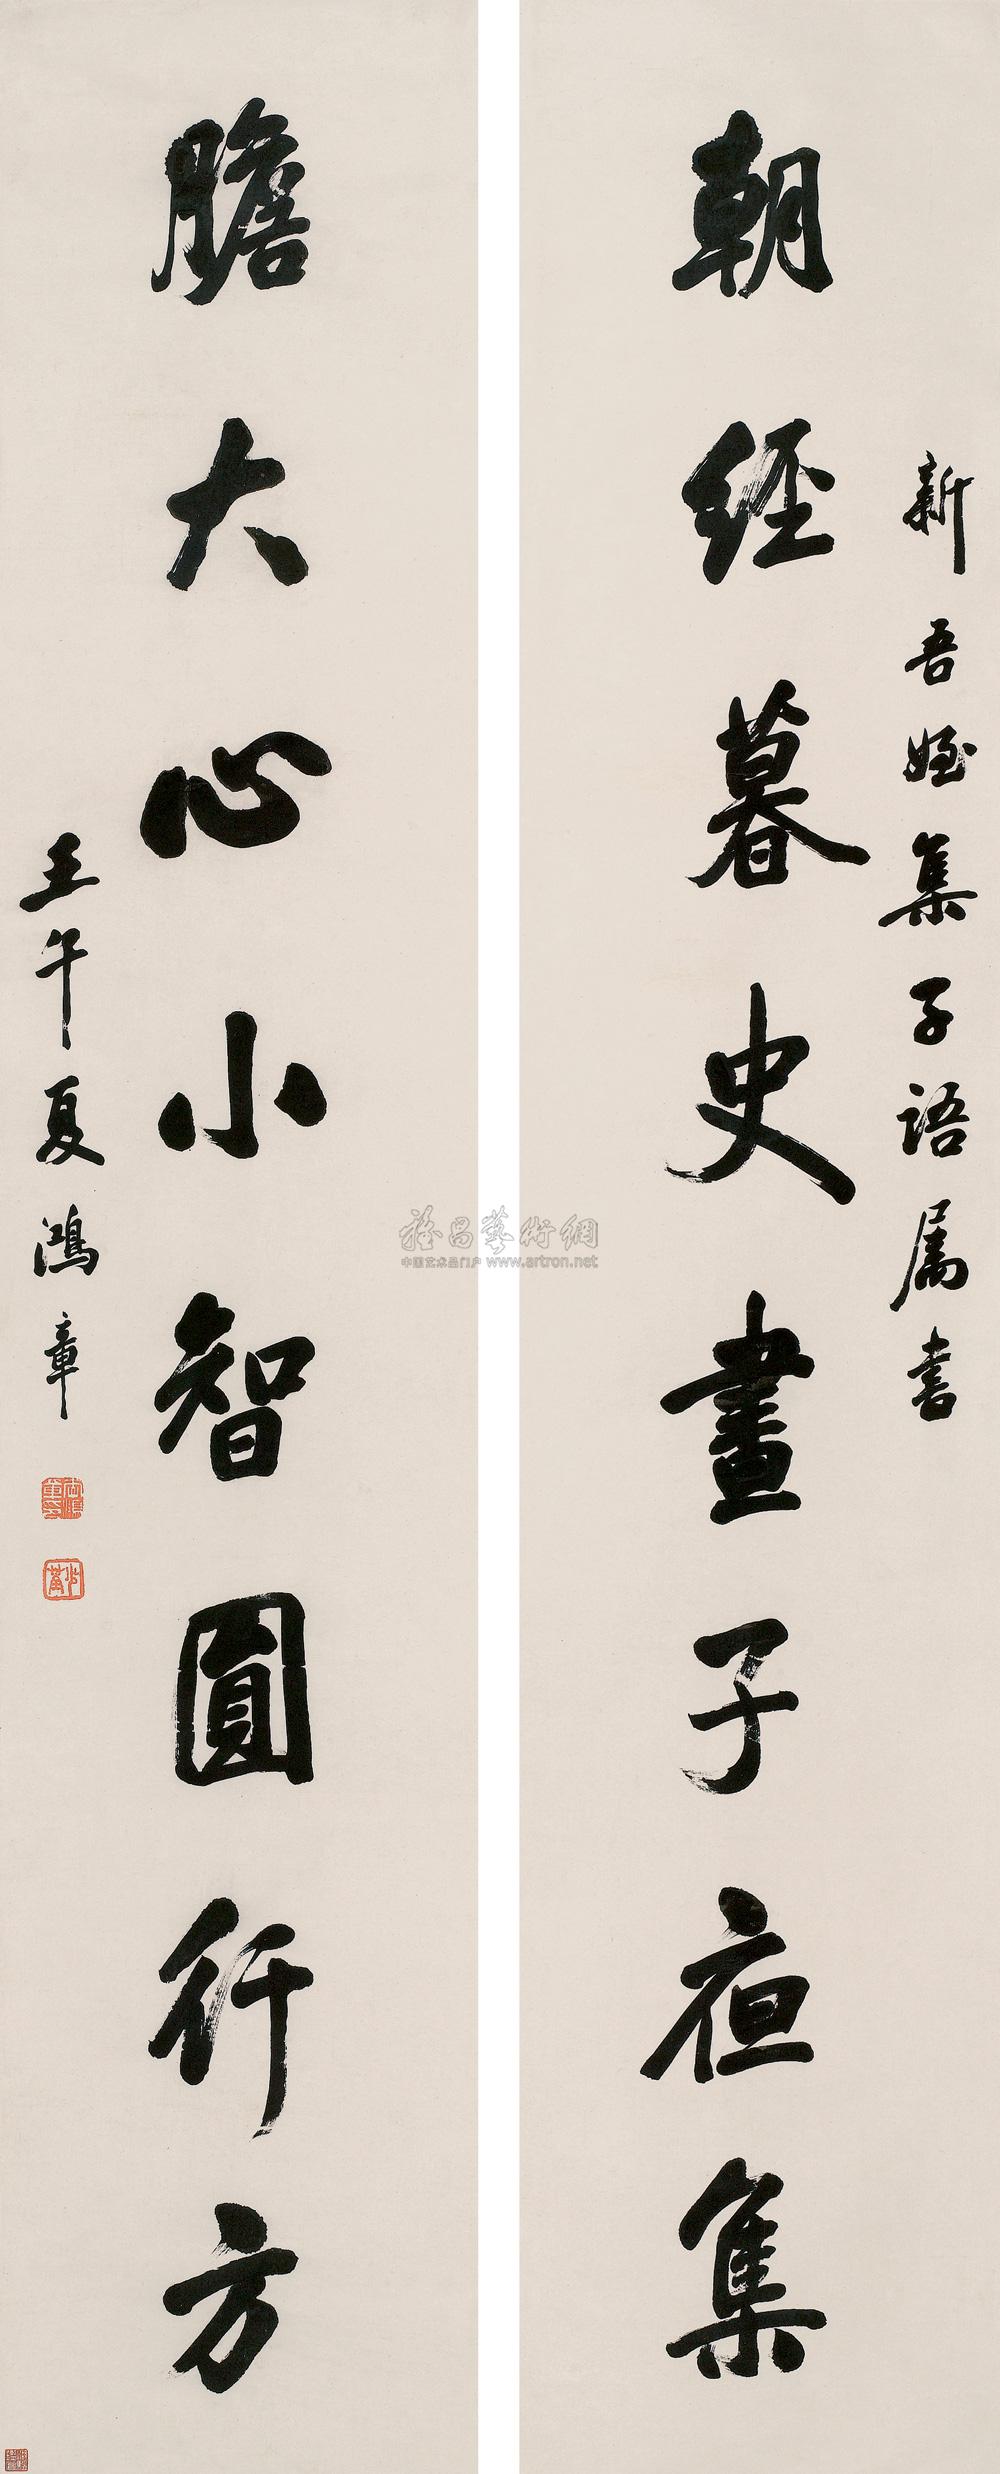 朝经暮史晝子夜集
新吾姪集子语属书
膽大心小智圓行方
壬午夏鴻章
雅昌藝術網
中国艺术品门户 www.artron.net